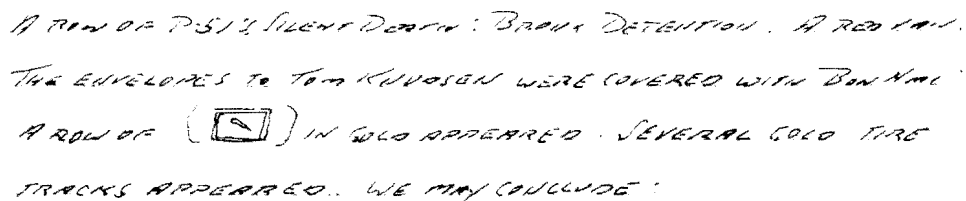 A ROW OF P-51'S, SILENT DEATH: BRONX DETENTION. A RED VAN.
THE ENVELOPES TO TOM KNUDSEN WERE COVERED WITH BON AMI
A ROW OF ( ) IN GOLD APPEARED. SEVERAL COLD TIRE
TRACKS APPEARED. WE MAY CONCLUDE: